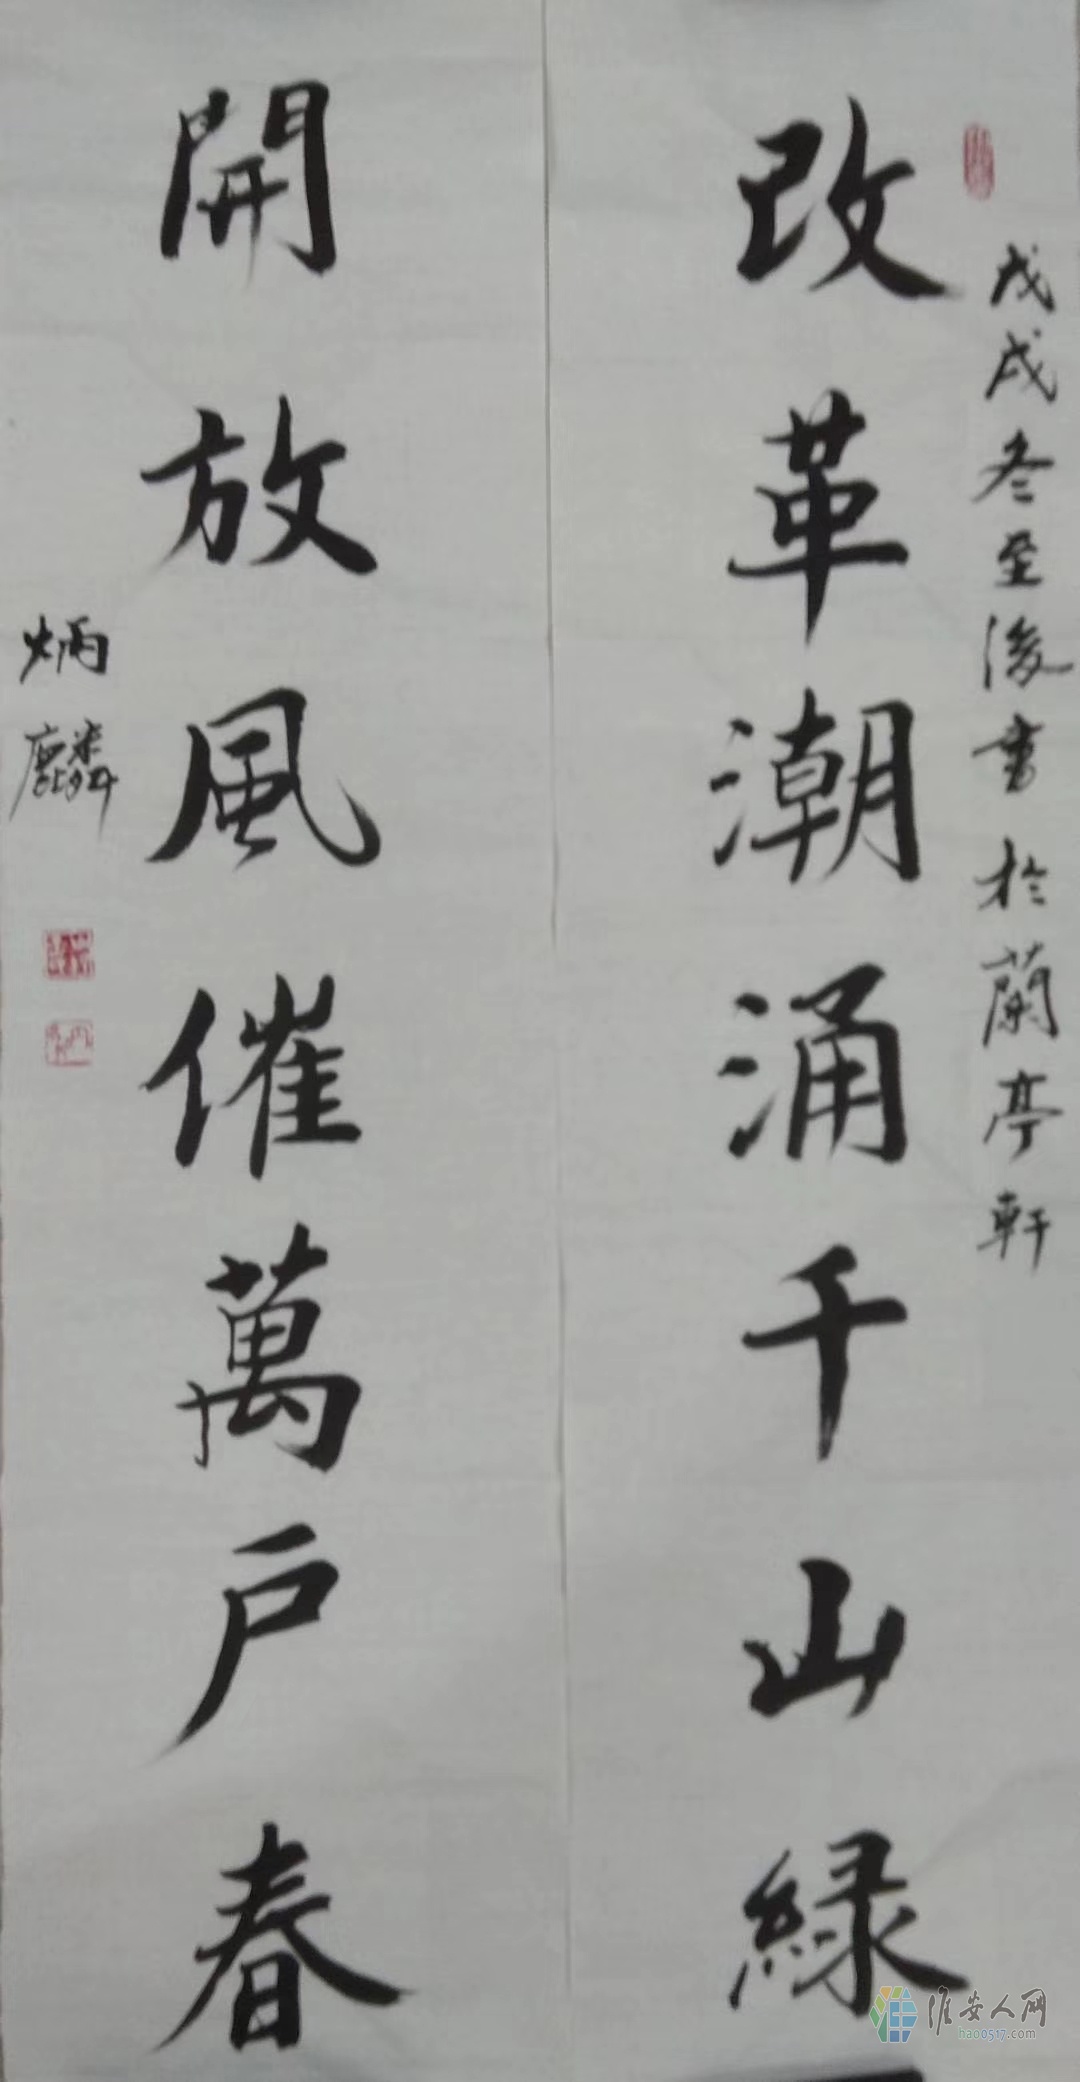 戊戌冬至後書於蘭亭軒
改革潮涌千山緑
開放風催萬户春
炳麟
淮安人网
hao0517.com